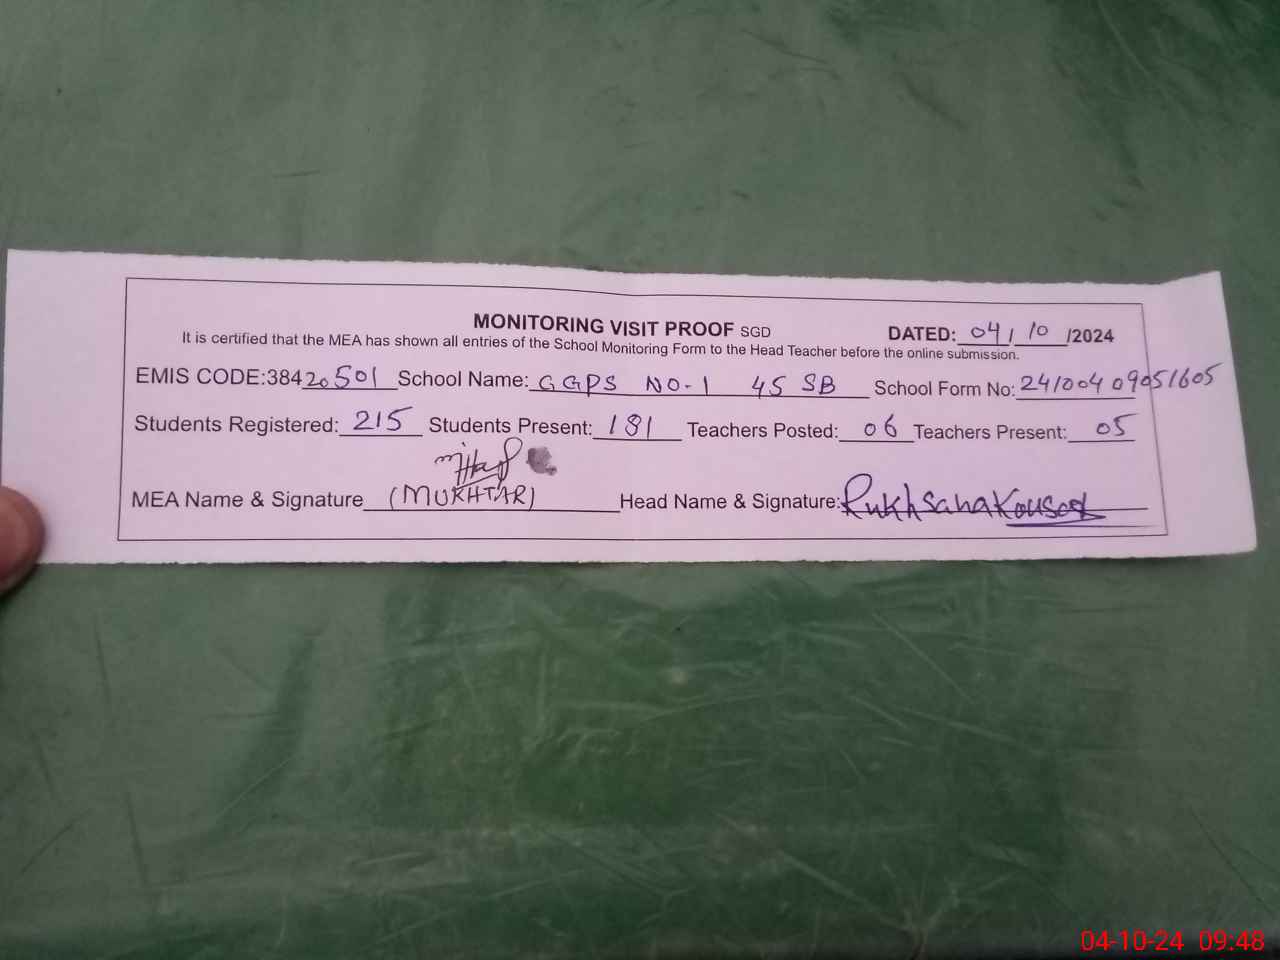 MONITORING VISIT PROOF SGD DATED: 04/10/2024
It is certified that the MEA has shown all entries of the School Monitoring Form to the Head Teacher before the online submission.
EMIS CODE:38420501 School Name: GGPS NO-1 45 SB School Form No: 24100409051605
Students Registered: 215 Students Present: 181 Teachers Posted: 06 Teachers Present: 05
MEA Name & Signature (MUKHTAR) Head Name & Signature: Rukhsana Kousar
04-10-24 09:48